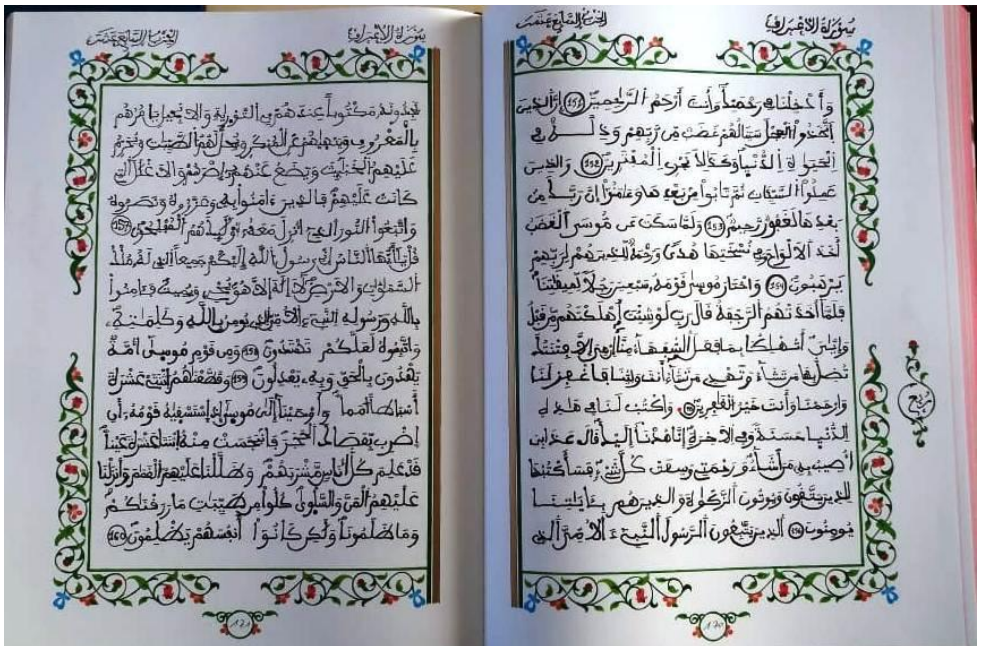 سورة الأعراف
الحزب السابع عشر
وأدخلنا في رحمتك وأنت أرحم الراحمين 151 إن الذين
اتخذوا العجل سينالهم غضب من ربهم وذلة في
الحيوة الدنيا وكذلك نجزي المفترين 152 والذين
عملوا السيئات ثم تابوا من بعدها وءامنوا إن ربك من
بعدها لغفور رحيم 153 ولما سكت عن موسى الغضب
أخذ الالواح وفي نسختها هدى ورحمة للذين هم لربهم
يرهبون 154 واختار موسى قومه سبعين رجلا لميقاتنا
فلما أخذتهم الرجفة قال رب لو شئت أهلكتهم من قبل
وإيى أتهلكنا بما فعل السفهاء منا إن هي إلا فتنتك
تضل بها من تشاء وتهدي من تشاء أنت ولينا فاغفر لنا
وارحمنا وأنت خير الغافرين واكتب لنا في هذه
الدنيا حسنة وفي الاخرة إنا هدنا إليك قال عذابي
أصيب به من أشاء ورحمتي وسعت كل شيء فسأكتبها
للذين يتقون ويوتون الزكوة والذين هم بئايتنا
يومنون 156 الذين يتبعون الرسول النبيء الامي الذي
170
سورة الأعراف
الحزب السابع عشر
يجدونه مكتوبا عندهم في التورية والانجيل يامرهم
بالمعروف وينهيهم عن المنكر ويحل لهم الطيبت ويحرم
عليهم الخبئث ويضع عنهم إصرهم والاغلل التي
كانت عليهم فالذين ءامنوا به وعزروه ونصروه
واتبعوا النور الذي أنزل معه أولئك هم المفلحون 157
قل يأيها الناس إني رسول الله إليكم جميعا الذي له ملك
السموت والارض لا إله إلا هو يحي ويميت فئامنوا
بالله ورسوله النبيء الامي الذي يومن بالله وكلمته
واتبعوه لعلكم تهتدون 158 ومن قوم موسى أمة
يهدون بالحق وبه يعدلون 159 وقطعنهم اثنتي عشرة
أسباطا أمما وأوحينا إلى موسى إذ استسقيه قومه أن
اضرب بعصاك الحجر فانبجست منه اثنتا عشرة عينا
قد علم كل أناس مشربهم وظللنا عليهم الغمم وأنزلنا
عليهم المن والسلوى كلوا من طيبت ما رزقنكم
وما ظلمونا ولكن كانوا أنفسهم يظلمون 160
171